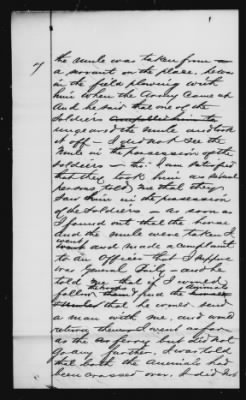 7
the mule was taken from
a servant on the place. he was
in the field plowing with
him when the Army Came up
And he said that one of the
Soldiers compelled him to
ungeared the mule and took
it off - I did not see the
mule in the possession of the
soldiers - I am satisfied
that they took him as
persons told me that they
saw him in the possession
of the Soldiers - as soon as
I found out that the horse
and the mule were taken I
went and made a complaint
to an Officer that I suppose
was General - and he
told me that if I would
follow and find the animals
that he would send
a man with me, and would
return them. I went as far
as the ferry but did not
go any further, I was told
that both the animals had
been crossed over. I did not